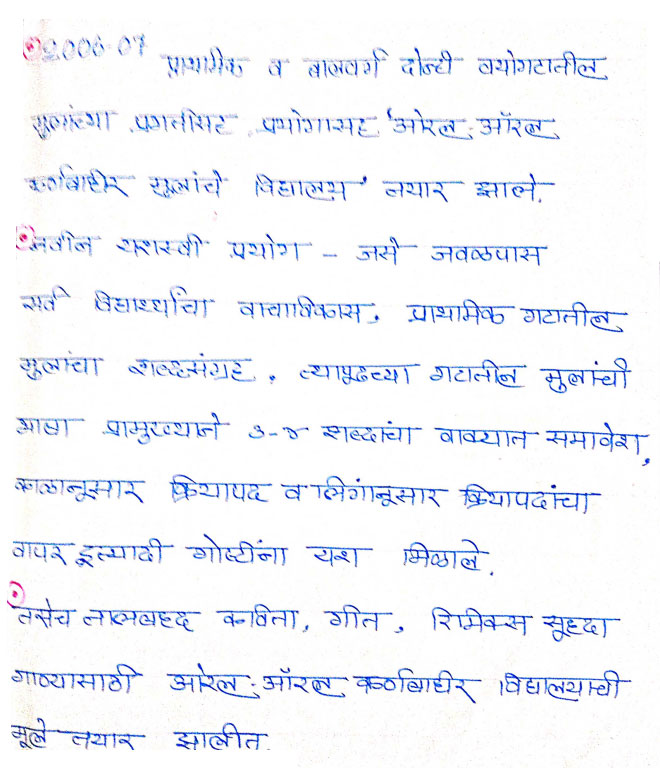 2006-07 प्राथमिक व बालवर्ग दोन्ही वयोगटातील
मुलांच्या प्रगतीसह प्रयोगासह 'ओरल-ऑरल
कर्णबधीर मुलांचे विद्यालय' तयार झाले.
नवीन यशस्वी प्रयोग - जसे जवळपास
सर्व विद्यार्थ्यांचा वाचाविकास, प्राथमिक गटातील
मुलांचा शब्दसंग्रह, त्यापुढच्या गटातील मुलांची
भाषा प्रामुख्याने ३-४ शब्दांचा वाक्यात समावेश,
काळानूसार क्रियापद व लिंगांनूसार क्रियापदांचा
वापर इत्यादी गोष्टींना यश मिळाले.
तसेच तालबध्द कविता, गीत, रिमिक्स सूध्दा
गाण्यासाठी ओरल-ऑरल कर्णबधीर विद्यालयाची
मूले तयार झालीत.